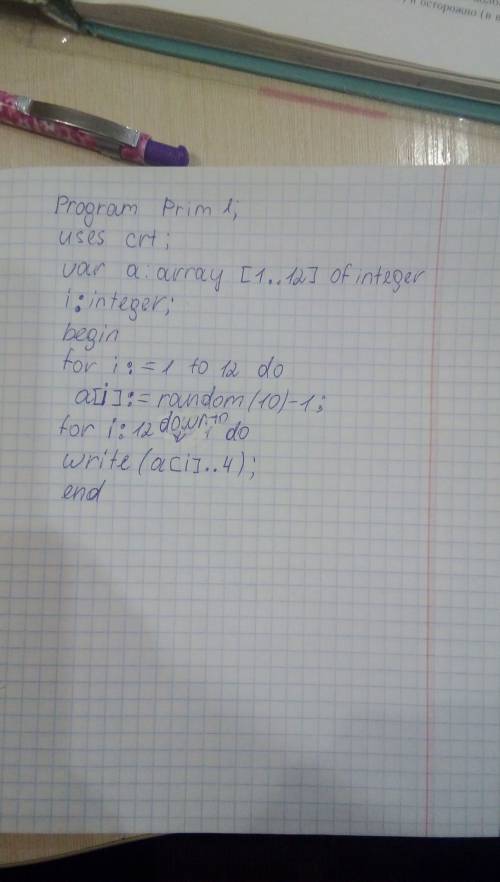 и осторожно (в в
Program Prim 1;
uses crt;
var a:array [1..12] of integer
i:integer;
begin
for i:=1 to 12 do
a[i]:=random(10)-1;
for i:12 downto 1 do
write(a[i]..4);
end